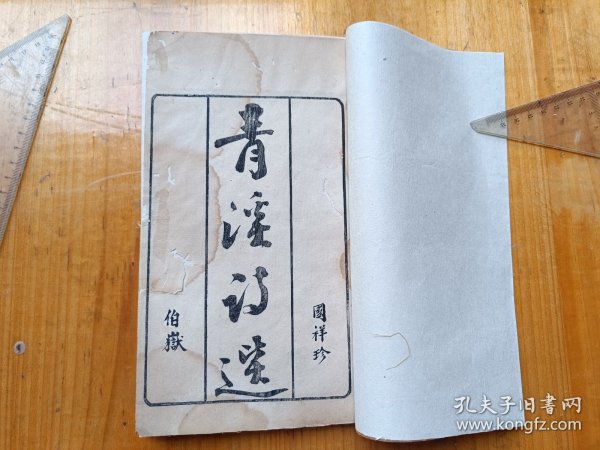 國祥珍
青溪詩選
伯嶽
孔夫子旧書网
www.kongfz.com